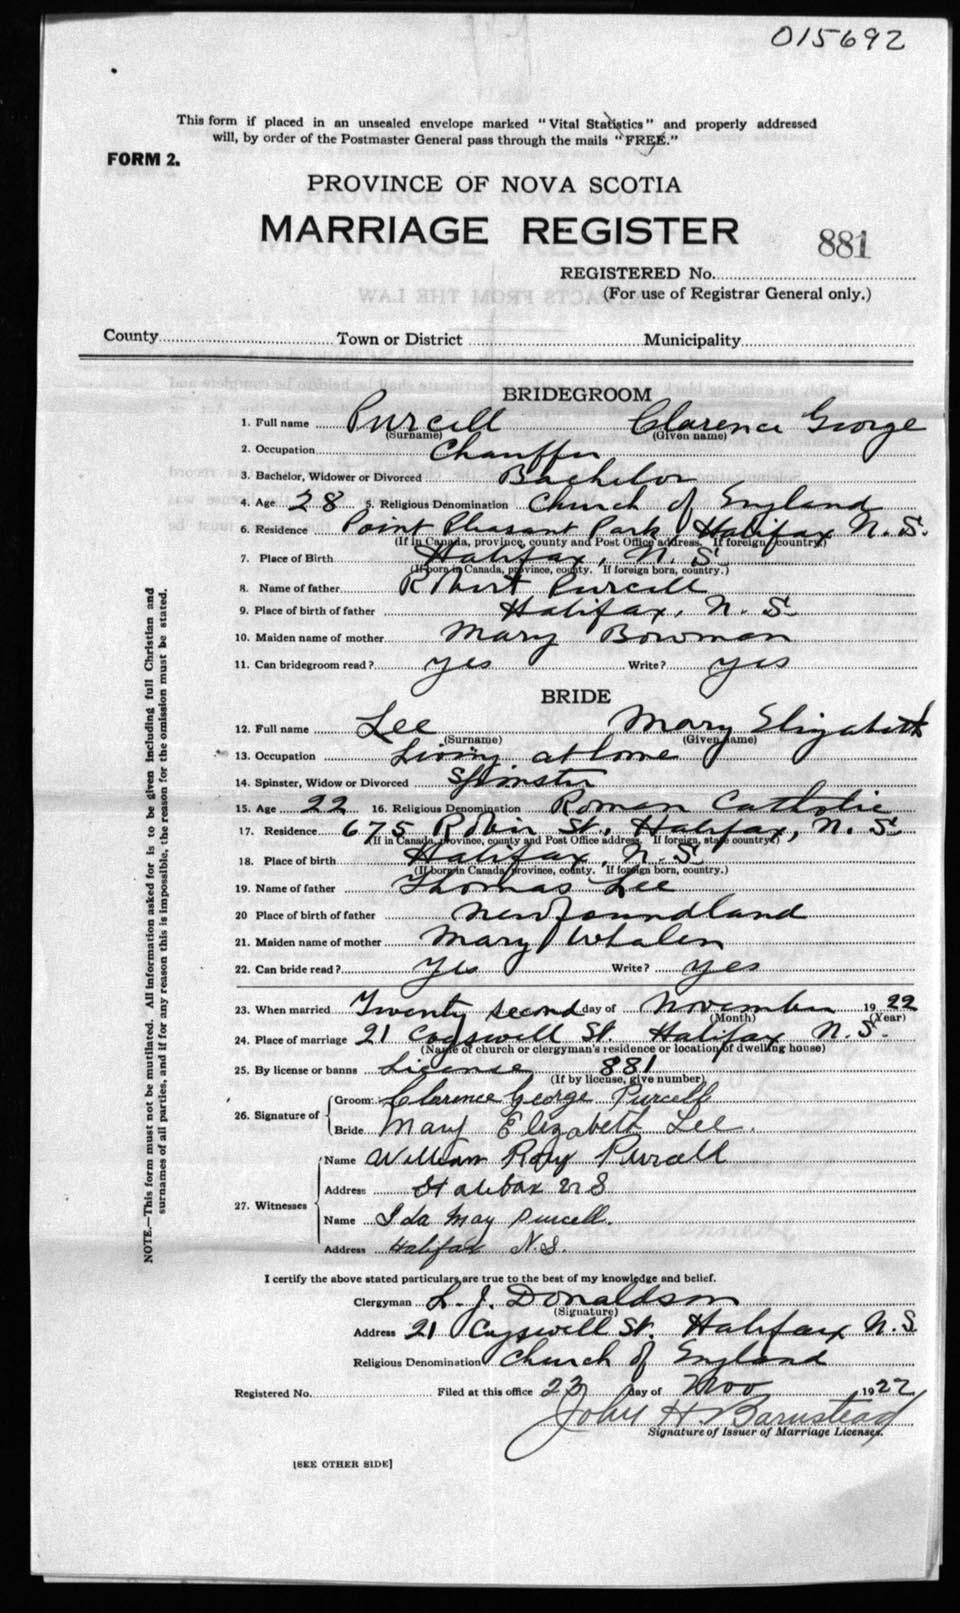 015692
This form if placed in an unsealed envelope marked "Vital Statistics" and properly addressed
will, by order of the Postmaster General pass through the mails "FREE."
FORM 2.
PROVINCE OF NOVA SCOTIA
MARRIAGE REGISTER
881
REGISTERED No.
(For use of Registrar General only.)
County Town or District Municipality
BRIDEGROOM
1. Full name Purcell Clarence George
(Surname) (Given name)
2. Occupation Chauffer
3. Bachelor, Widower or Divorced Bachelor
4. Age 28 5. Religious Denomination Church of England
6. Residence Point Pleasant Park, Halifax N. S.
(If in Canada, province, county and Post Office address. If foreign, country.)
7. Place of Birth Halifax, N. S.
(If born in Canada, province, county. If foreign born, country.)
8. Name of father Robert Purcell
9. Place of birth of father Halifax, N. S.
10. Maiden name of mother Mary Bowman
11. Can bridegroom read? yes Write? yes
BRIDE
12. Full name Lee Mary Elizabeth
(Surname) (Given name)
13. Occupation Living at home
14. Spinster, Widow or Divorced Spinster
15. Age 22 16. Religious Denomination Roman Catholic
17. Residence 675 Robie St., Halifax, N. S.
(If in Canada, province, county and Post Office address. If foreign, state country.)
18. Place of birth Halifax, N. S.
(If born in Canada, province, county. If foreign born, country.)
19. Name of father Thomas Lee
20 Place of birth of father Newfoundland
21. Maiden name of mother Mary Whalen
22. Can bride read? Yes Write? yes
23. When married Twenty second day of November 1922
(Month) (Year)
24. Place of marriage 21 Cogswell St. Halifax N. S.
(Name of church or clergyman's residence or location of dwelling house)
25. By license or banns License 881
(If by license, give number)
26. Signature of
Groom: Clarence George Purcell
Bride Mary Elizabeth Lee.
27. Witnesses
Name William Roy Purcell
Address Halifax N S
Name Ida May Purcell.
Address Halifax N.S.
I certify the above stated particulars are true to the best of my knowledge and belief.
Clergyman L. J. Donaldson
(Signature)
Address 21 Cogswell St. Halifax N.S.
Religious Denomination Church of England
Registered No. Filed at this office 23 day of Nov 1922
John H. Barnstead
Signature of Issuer of Marriage Licenses.
[SEE OTHER SIDE]
NOTE.—This form must not be mutilated. All information asked for is to be given including full Christian and
surnames of all parties, and if for any reason this is impossible, the reason for the omission must be stated.